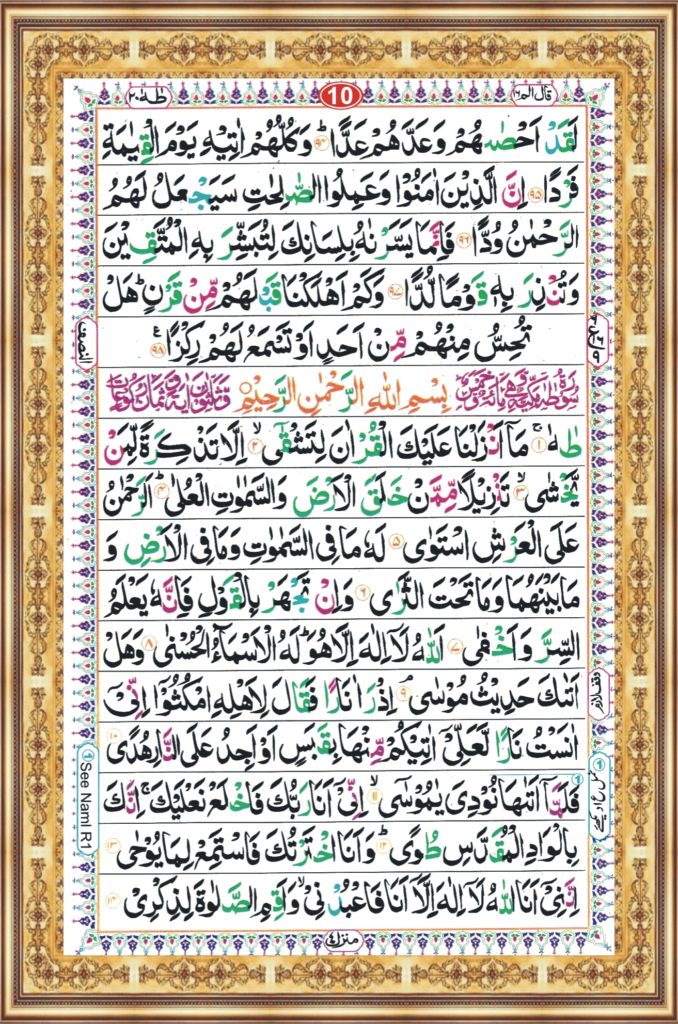 قال الم ١٦
10
طٰهٰ ٢٠
لَقَدْ اَحْصٰىهُمْ وَعَدَّهُمْ عَدًّا ؕ ٩٤ وَكُلُّهُمْ اٰتِيْهِ يَوْمَ الْقِيٰمَةِ
فَرْدًا ٩٥ اِنَّ الَّذِيْنَ اٰمَنُوْا وَعَمِلُوا الصّٰلِحٰتِ سَيَجْعَلُ لَهُمُ
الرَّحْمٰنُ وُدًّا ٩٦ فَاِنَّمَا يَسَّرْنٰهُ بِلِسَانِكَ لِتُبَشِّرَ بِهِ الْمُتَّقِيْنَ
وَتُنْذِرَ بِهٖ قَوْمًا لُّدًّا ٩٧ وَكَمْ اَهْلَكْنَا قَبْلَهُمْ مِّنْ قَرْنٍ ؕ هَلْ
تُحِسُّ مِنْهُمْ مِّنْ اَحَدٍ اَوْ تَسْمَعُ لَهُمْ رِكْزًا ٩٨ ع
بِسْمِ اللّٰهِ الرَّحْمٰنِ الرَّحِيْمِ
طٰهٰ ۚ ١ مَاۤ اَنْزَلْنَا عَلَيْكَ الْقُرْاٰنَ لِتَشْقٰٓى ۙ ٢ اِلَّا تَذْكِرَةً لِّمَنْ
يَّخْشٰى ۙ ٣ تَنْزِيْلًا مِّمَّنْ خَلَقَ الْاَرْضَ وَالسَّمٰوٰتِ الْعُلٰى ؕ ٤ اَلرَّحْمٰنُ
عَلَى الْعَرْشِ اسْتَوٰى ٥ لَهٗ مَا فِى السَّمٰوٰتِ وَمَا فِى الْاَرْضِ وَ
مَا بَيْنَهُمَا وَمَا تَحْتَ الثَّرٰى ٦ وَاِنْ تَجْهَرْ بِالْقَوْلِ فَاِنَّهٗ يَعْلَمُ
السِّرَّ وَاَخْفٰى ٧ اَللّٰهُ لَاۤ اِلٰهَ اِلَّا هُوَ ؕ لَهُ الْاَسْمَآءُ الْحُسْنٰى ٨ وَهَلْ
اَتٰىكَ حَدِيْثُ مُوْسٰى ۘ ٩ اِذْ رَاٰ نَارًا فَقَالَ لِاَهْلِهِ امْكُثُوْۤا اِنِّيْۤ
اٰنَسْتُ نَارًا لَّعَلِّيْۤ اٰتِيْكُمْ مِّنْهَا بِقَبَسٍ اَوْ اَجِدُ عَلَى النَّارِ هُدًى ١٠
فَلَمَّاۤ اَتٰىهَا نُوْدِيَ يٰمُوْسٰى ؕ ١١ اِنِّيْۤ اَنَا رَبُّكَ فَاخْلَعْ نَعْلَيْكَ ۚ اِنَّكَ
بِالْوَادِ الْمُقَدَّسِ طُوًى ؕ ١٢ وَاَنَا اخْتَرْتُكَ فَاسْتَمِعْ لِمَا يُوْحٰى ١٣
اِنَّنِيْۤ اَنَا اللّٰهُ لَاۤ اِلٰهَ اِلَّاۤ اَنَا فَاعْبُدْنِيْ ۙ وَاَقِمِ الصَّلٰوةَ لِذِكْرِيْ ١٤
النصف
وقف لازم
① See Naml R1
منزل ٤